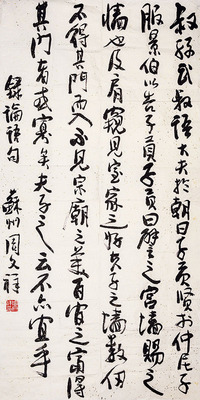 叔孫武叔語大夫於朝曰子貢賢於仲尼子
服景伯以告子貢子貢曰譬之宮墻賜之
墻也及肩窺見室家之好夫子之墻數仞
不得其門而入不見宗廟之美百官之富得
其門者或寡矣夫子之云不亦宜乎
錄論語句 蘇州周文祥